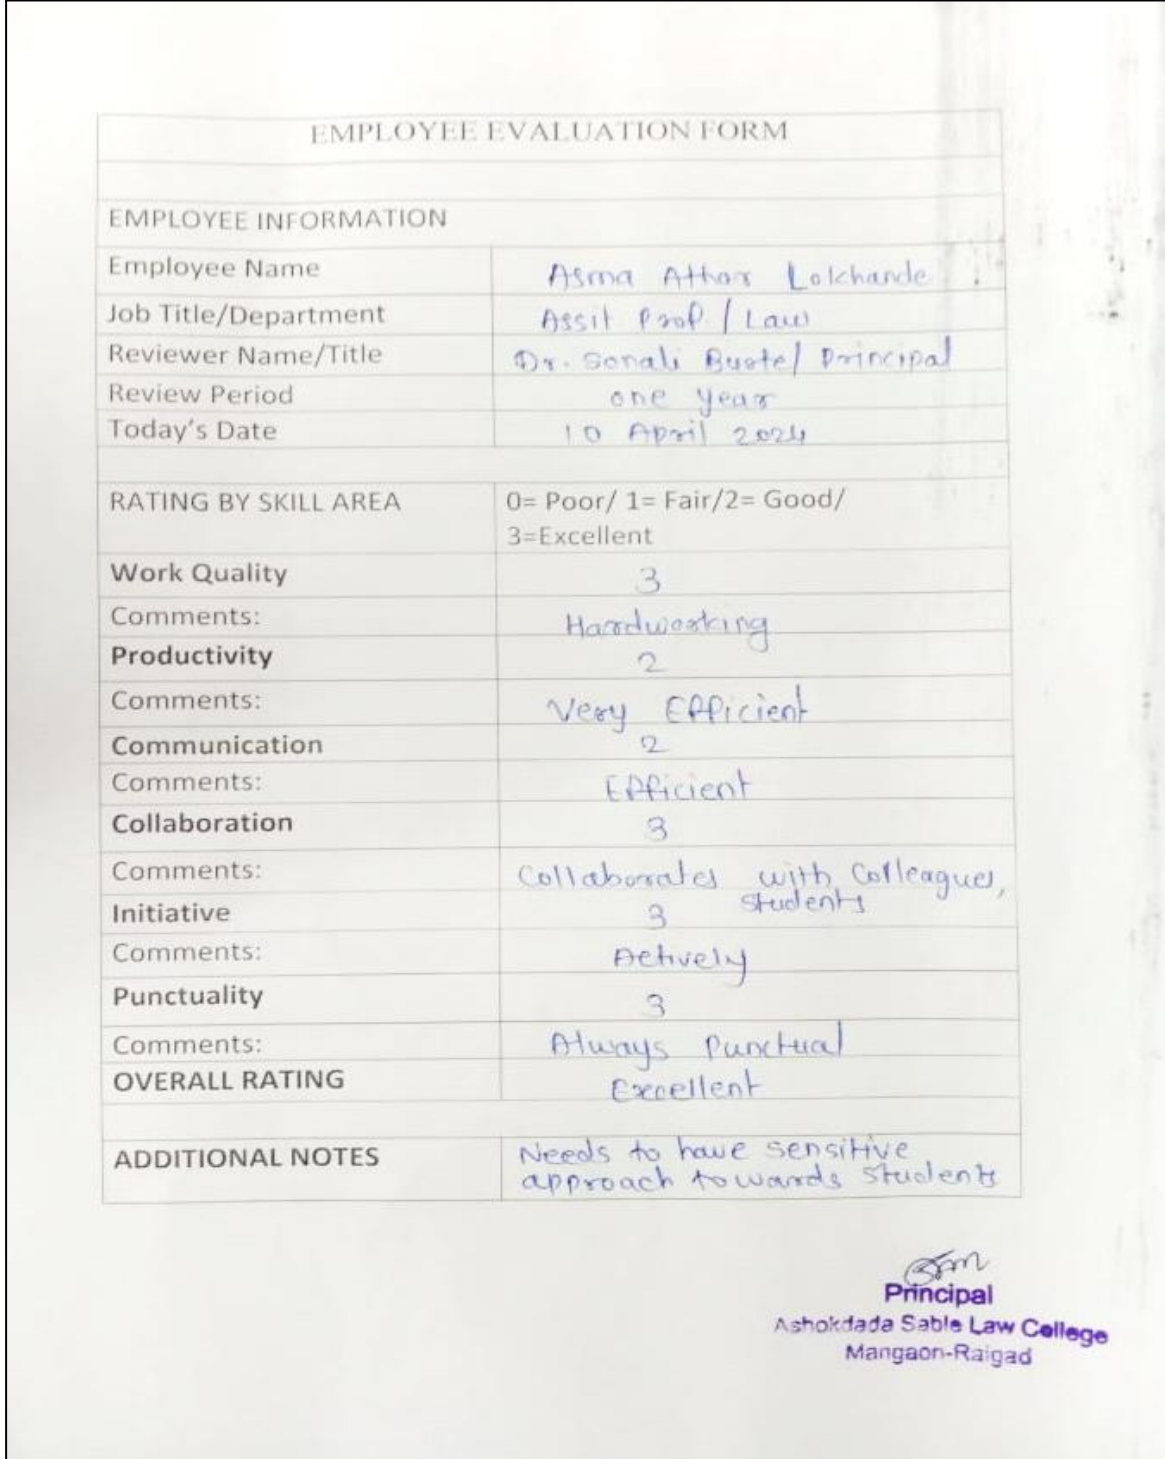 EMPLOYEE EVALUATION FORM
EMPLOYEE INFORMATION
Employee Name Asma Athar Lokhande
Job Title/Department Assit Prof. / Law
Reviewer Name/Title Dr. Sonali Buste/ Principal
Review Period one year
Today's Date 10 April 2024
RATING BY SKILL AREA 0= Poor/ 1= Fair/2= Good/
3=Excellent
Work Quality 3
Comments: Hardworking
Productivity 2
Comments: Very Efficient
Communication 2
Comments: Efficient
Collaboration 3
Comments: Collaborates with Colleagues,
students
Initiative 3
Comments: Actively
Punctuality 3
Comments: Always Punctual
OVERALL RATING Excellent
ADDITIONAL NOTES Needs to have sensitive
approach towards students
Principal
Ashokdada Sable Law College
Mangaon-Raigad